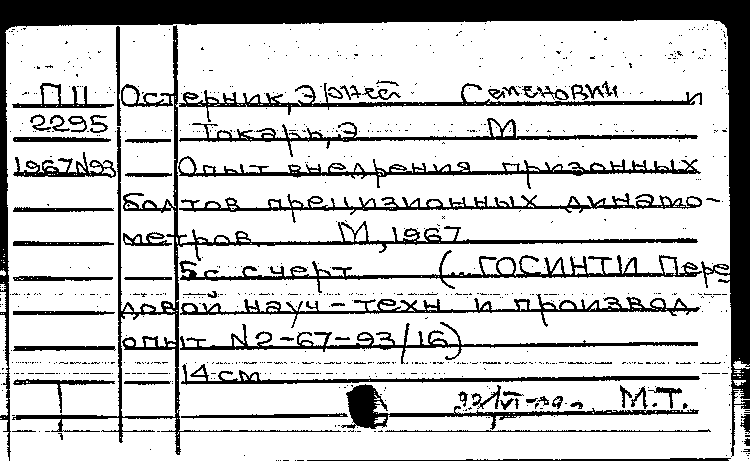 П II Остерник, Эрнест Семенович и
2295 Токарь, Э М
1967N93 Опыт внедрения призонных
болтов прецизионных динамо-
метров. М, 1967
5с с черт (... ГОСИНТИ Пере
довой науч-техн и производ
опыт N2-67-93/16)
14 см
М.Т.